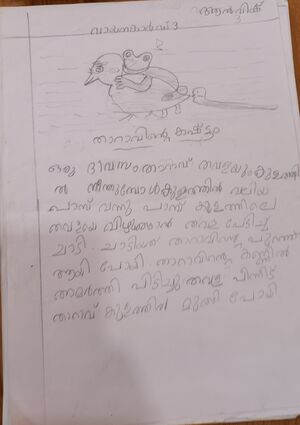 ആൻവിക്ക്
വായനകാർഡ് 3
താറാവിന്റെ കഷ്ട്ടം
ഒരു ദിവസം താറാവ് തവളയും കുളത്തി
ൽ നീന്തുമ്പോൾ കുളത്തിൽ വലിയ
പാമ്പ് വന്നു പാമ്പ് കുളത്തിലെ
തവളയെ വിഴുങ്ങാൻ തവള പേടിച്ച്
ചാടി . ചാടിയത് താറാവിന്റെ പുറത്ത്
ആയി പോയി . താറാവിന്റെ കണ്ണിൽ
അമർത്തി പിടിച്ചു തവള പിന്നിട്
താറാവ് കുളത്തിൽ മുങ്ങി പോയി